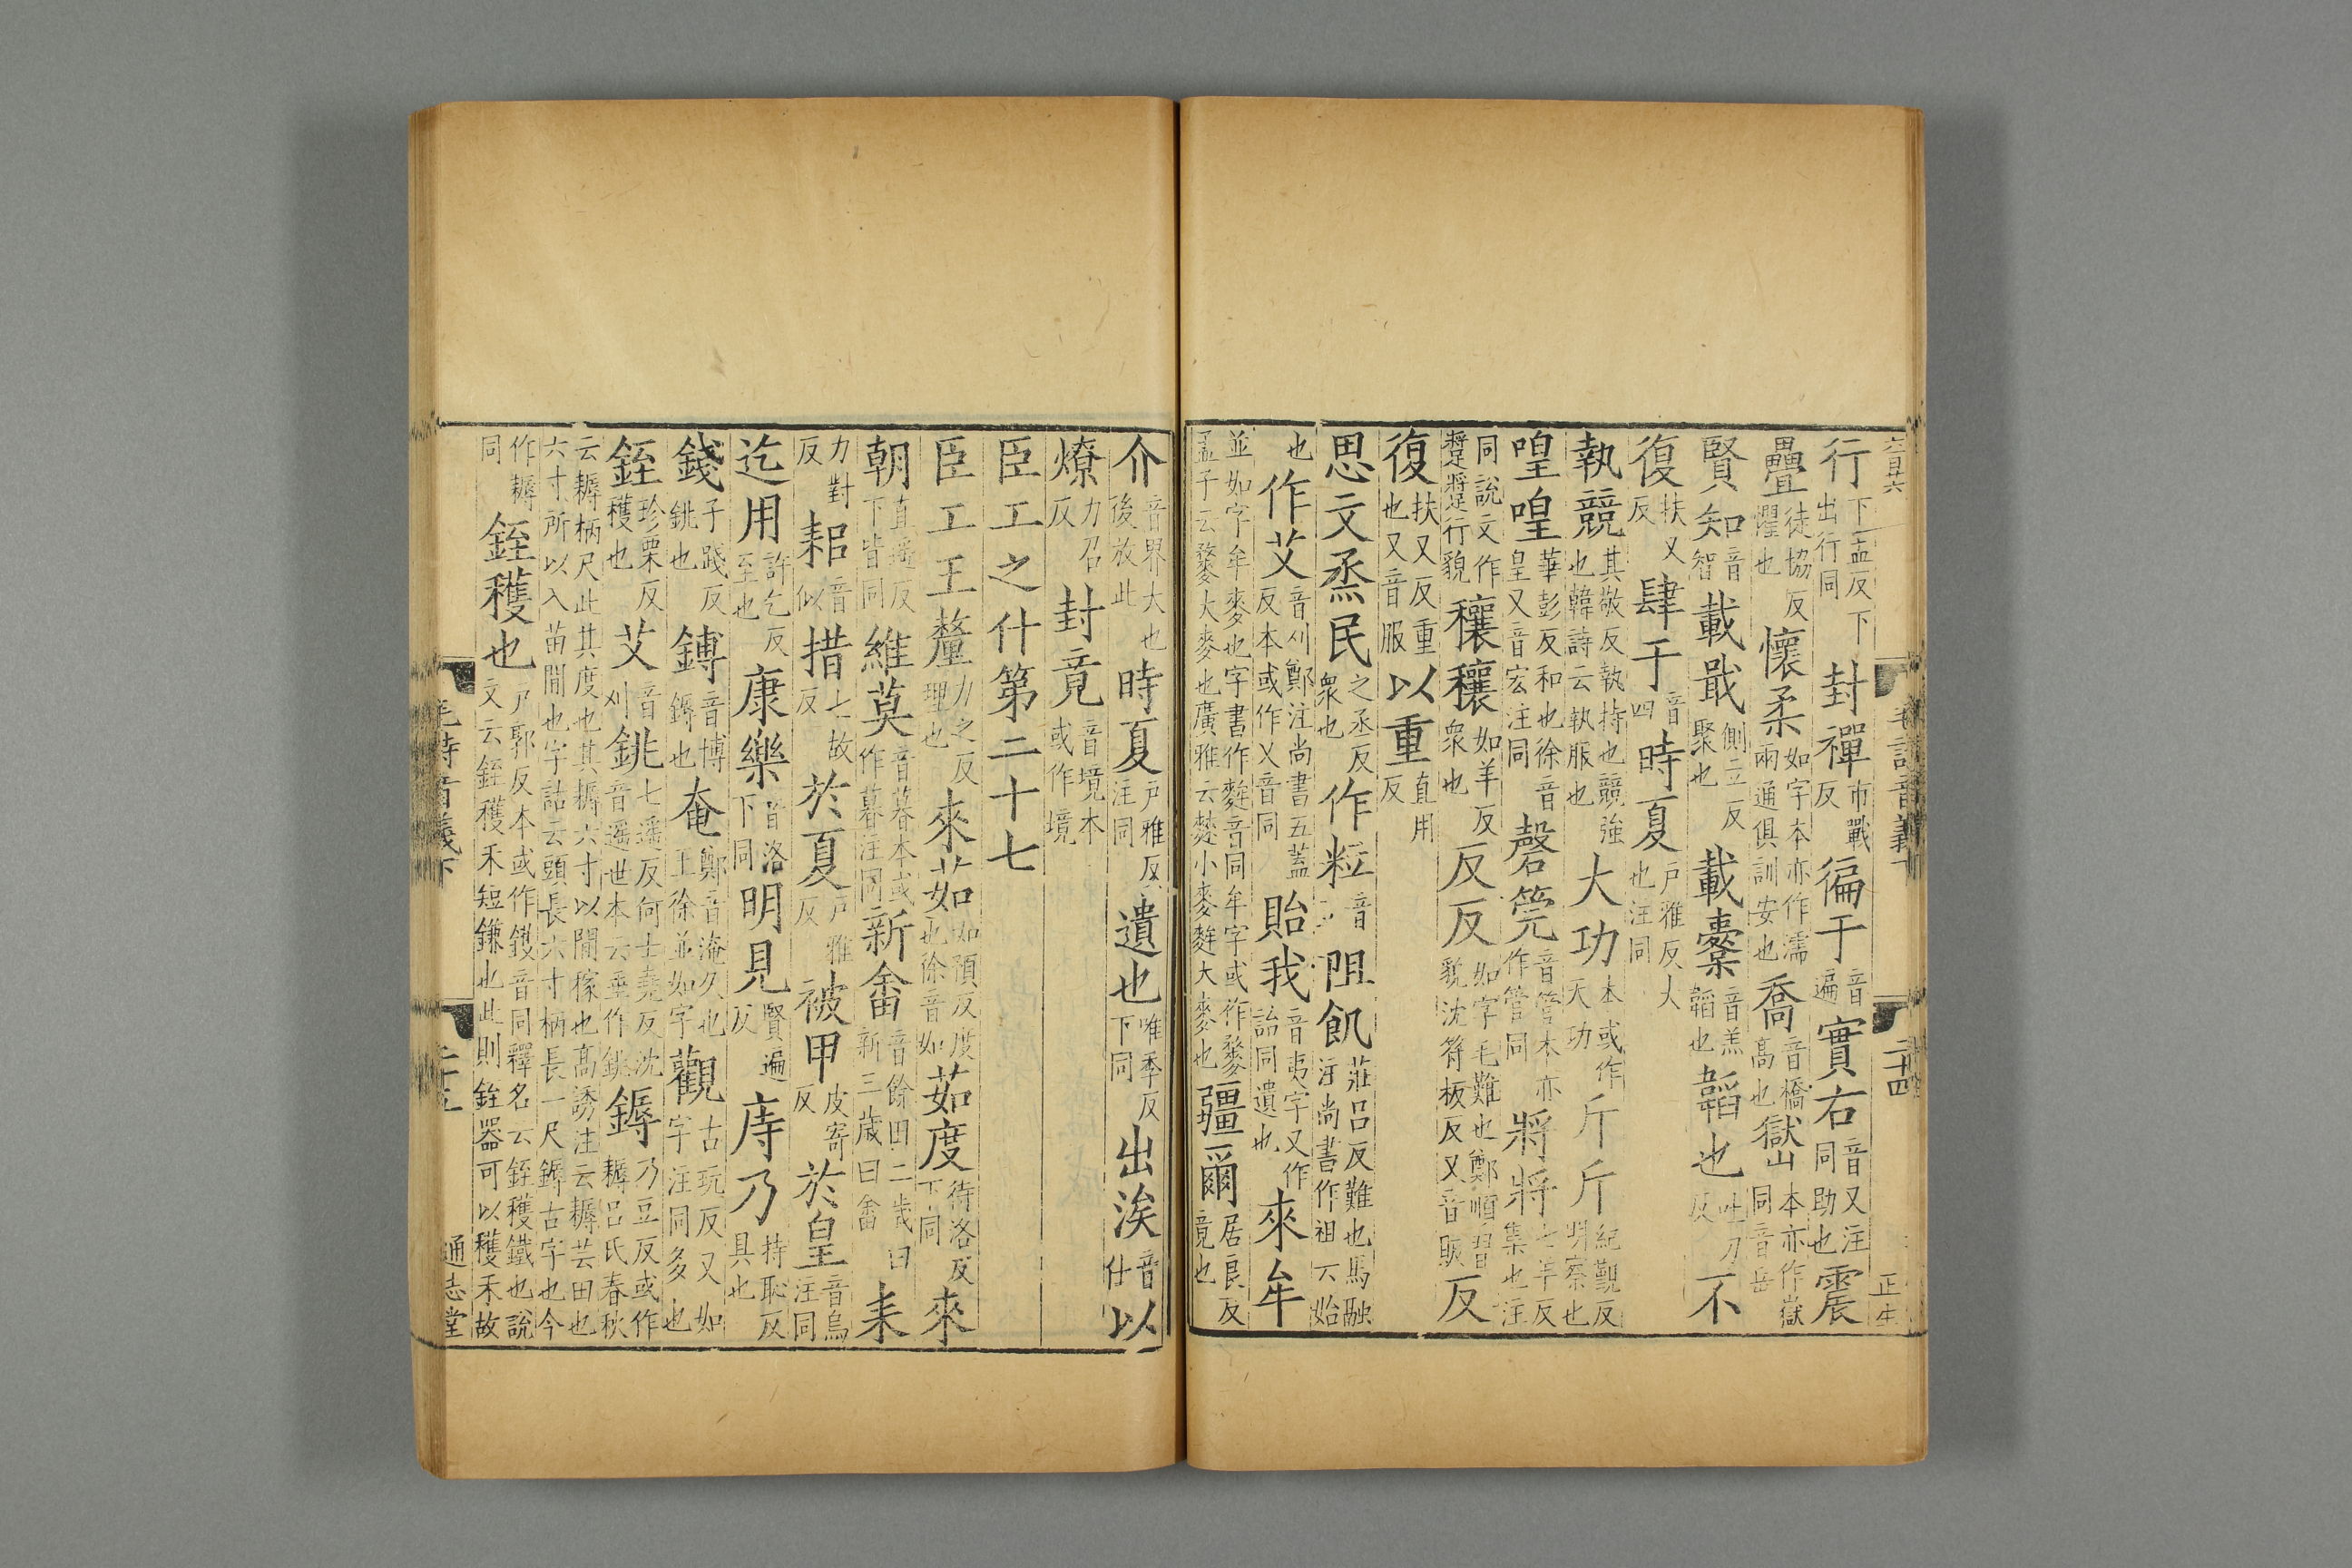 六百六
毛詩音義下
二十四
正生
行下孟反下出行同封禪市戰反徧于音遍實右音又注同助也震
疊徒協反懼也懷柔如字本亦作濡兩通俱訓安也喬音橋高也嶽山本亦作嶽同音岳
賢知音智載戢側立反聚也載櫜音羔韜也韜也吐刀反不
復扶又反肆于音四時夏戶雅反大也注同
執競其敬反執持也競強也韓詩云執服也大功本或作天功斤斤紀覲反明察也
喤喤華彭反和也徐音皇又音宏注同磬筦音管本亦作管同將將七羊反集也注
同說文作蹩蹡行貌穰穰如羊反衆也反反如字毛難也鄭順習貌沈符板反又音販反
復扶又反重也又音服以重直用反
思文烝民之丞反衆也作粒音阻飢莊呂反難也馬融注尚書作祖云始
也作艾音刈鄭注尚書五蓋反本或作乂音同貽我音夷字又作詒同遺也來牟
並如字牟麥也字書作麰音同牟字或作䅘孟子云䅘大麥也廣雅云䴬小麥麰大麥也疆爾居良反竟也
介音界大也後放此時夏戶雅反注同遺也唯季反下同出涘音仕以
燎力召反封竟音境本或作境
臣工之什第二十七
臣工王釐力之反理也來茹如預反度也徐音如茹度待洛反下同來
朝直遥反下皆同維莫音暮本或作暮注同新畬音餘田二歲曰新三歲曰畬耒
力對反耜音似措七故反於夏戶雅反被甲皮寄反於皇音烏注同
迄用許乞反至也康樂音洛下同明見賢遍反庤乃持恥反具也
錢子踐反銚也鎛音博鎒也奄鄭音淹久也王徐並如字觀古玩反又如字注同多也
銍珍栗反穫也艾音刈銚七遥反何士堯反沈音遥世本云垂作銚鎒乃豆反或作耨呂氏春秋
云耨柄尺此其度也其耨六寸以間稼也高誘注云耨芸田也六寸所以入苗間也字詁云頭長六寸柄長一尺鎒古字也今
作耨同銍穫也戶郭反本或作鑊音同釋名云銍穫鐵也說文云銍穫禾短鎌也此則銍器可以穫禾故
毛詩音義下
二十五
通志堂